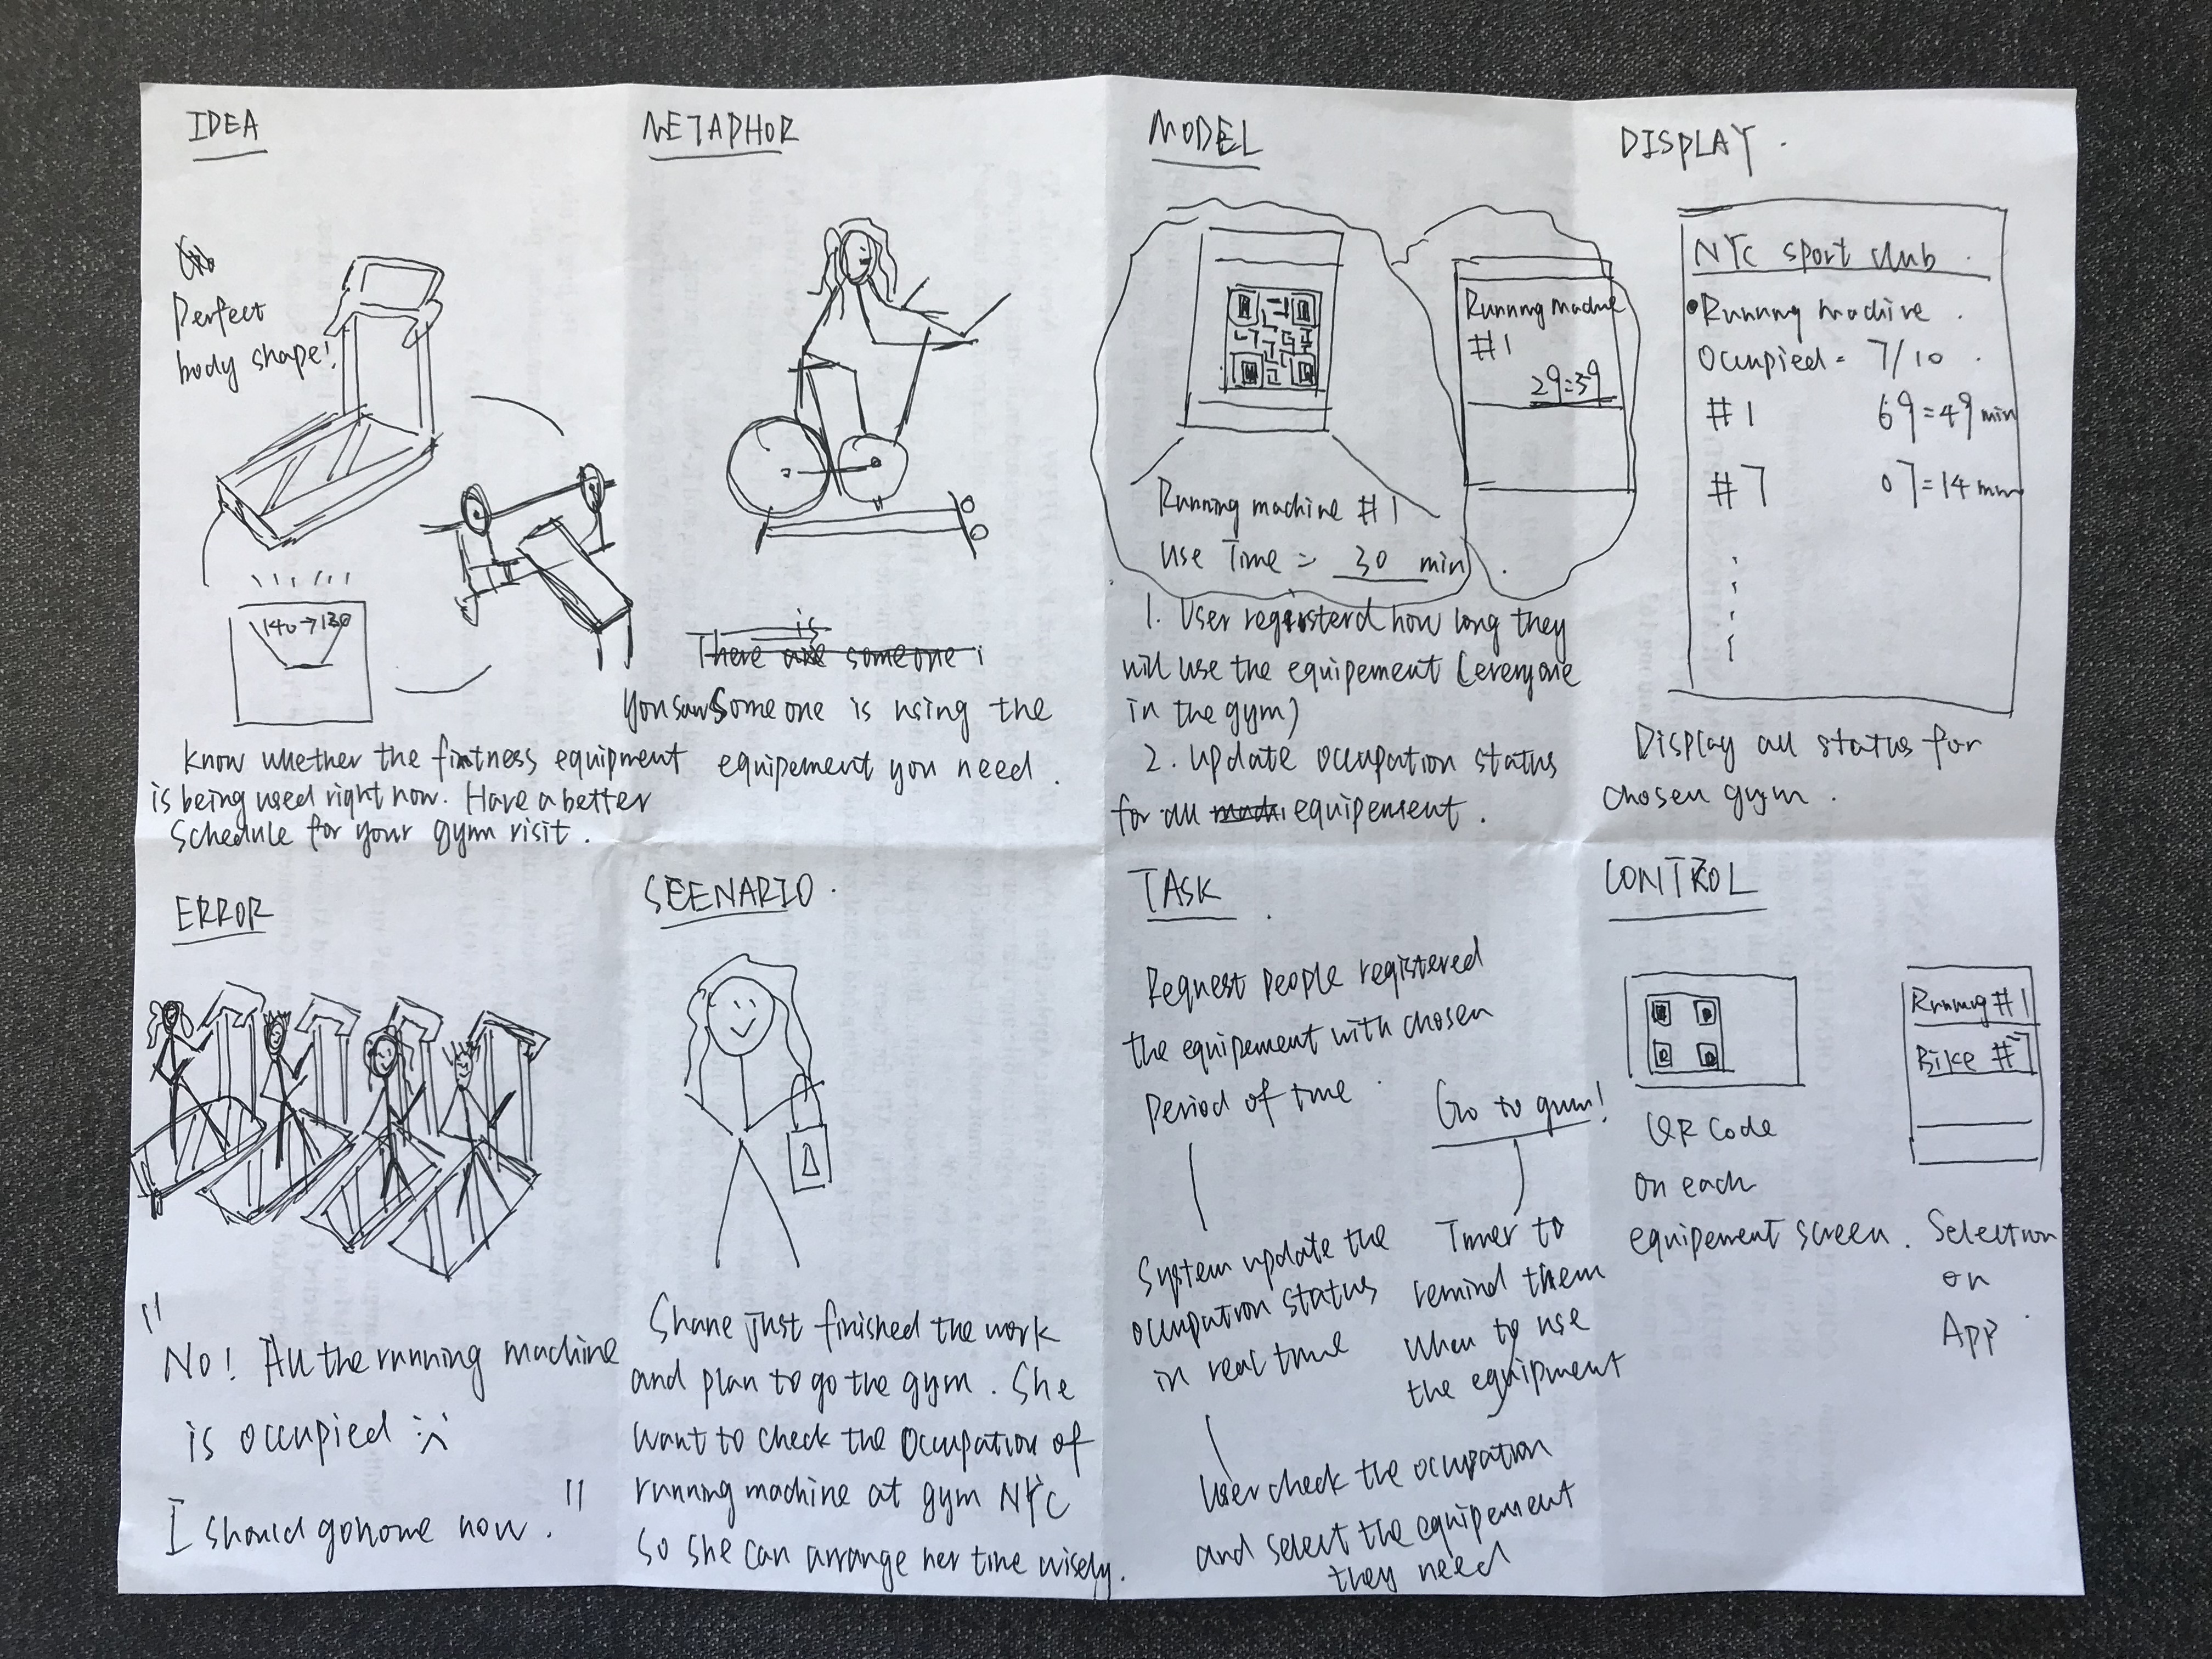 IDEA
Perfect
body shape!
140→130
Know whether the fintness equipment
is being used right now. Have a better
Schedule for your gym visit.
METAPHOR
There is someone
You saw Someone is using the
equipement you need.
MODEL
Running machine #1
Use Time = 30 min
Running machine
#1
29:39
1. User registerd how long they
will use the equipement (everyone
in the gym)
2. Update occupation status
for all equipement.
DISPLAY.
NYC sport club.
•Running machine.
Occupied = 7/10.
#1 69:49 min
#7 07:14 min
Display all status for
chosen gym.
ERROR
"
No! All the running machine
is occupied :(
I should go home now."
SEENARIO.
Shane just finished the work
and plan to go the gym. She
want to check the occupation of
running machine at gym NYC
so she can arrange her time wisely.
TASK.
Request people registered
the equipement with chosen
Period of time.
System update the
occupation status
in real time
User check the occupation
and select the equipement
they need
Go to gym!
Timer to
remind them
when to use
the equipment
CONTROL
QR Code
on each
equipement screen.
Running #1
Bike #7
Selection
on
App.